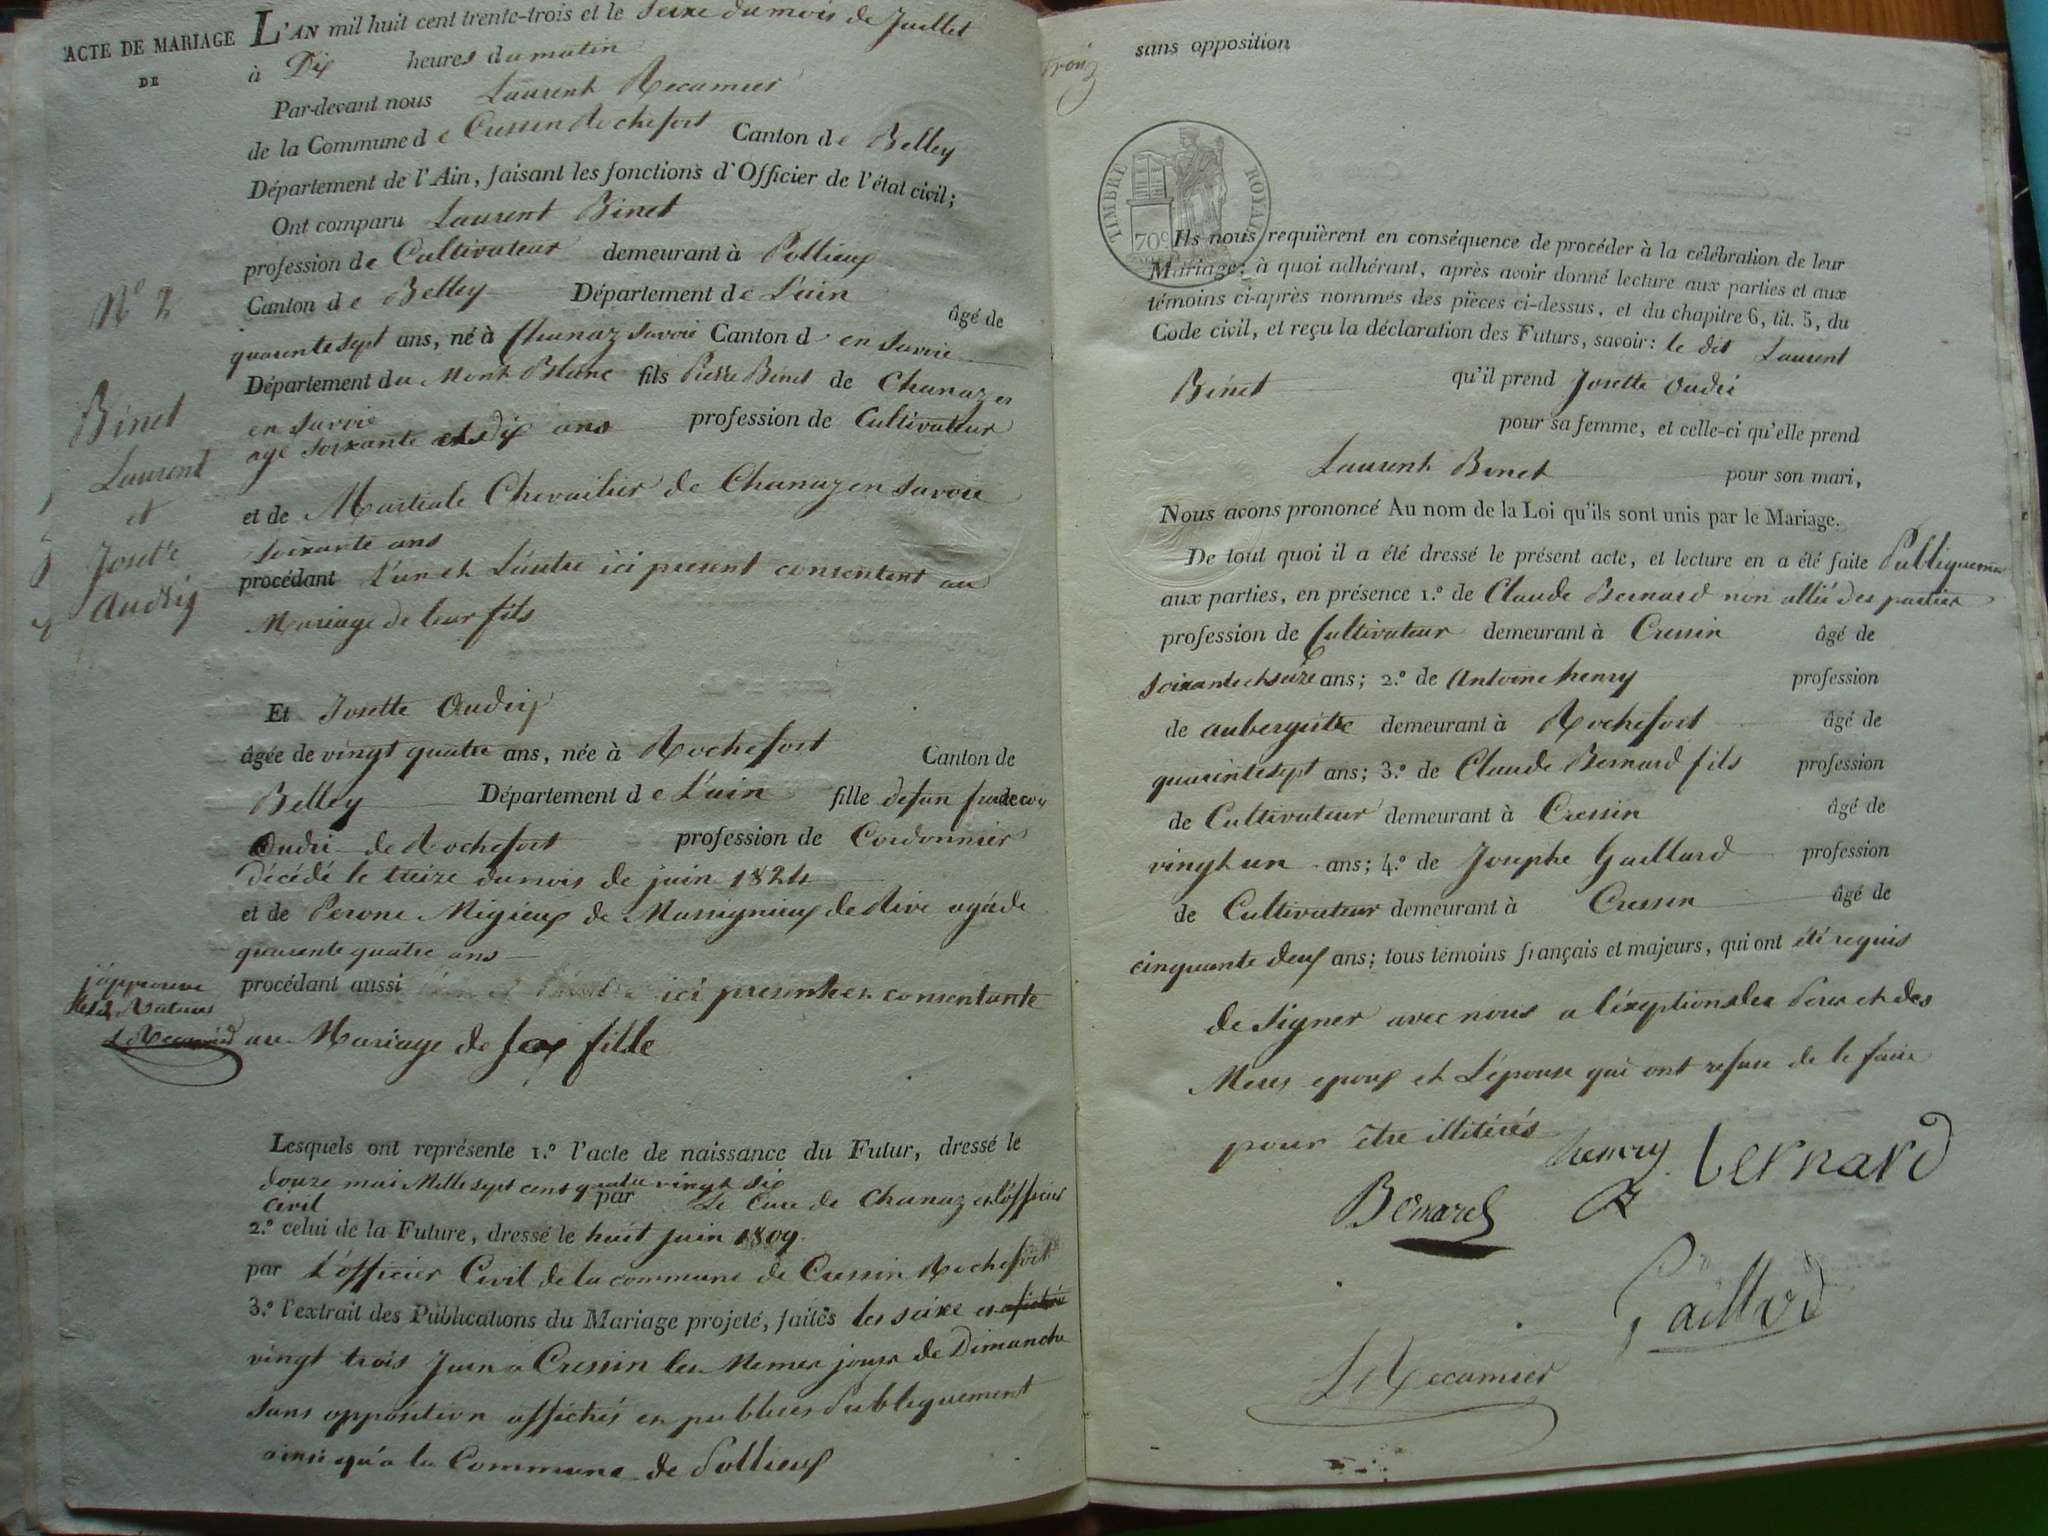 ACTE DE MARIAGE
DE
L'AN mil huit cent trente-trois et le Seize du mois de Juillet
à Dix heures du matin
Par-devant nous Laurent Recamier
de la Commune de Cressin Rochefort Canton de Belley
Département de l'Ain, faisant les fonctions d'Officier de l'état civil;
Ont comparu Laurent Binet
profession de Cultivateur demeurant à Pollieux
Canton de Belley Département de L'ain âgé de
quarente sept ans, né à Chanaz Savoie Canton d en Savoie
Département du Mont Blanc fils Pierre Binet de Chanaz en
en Savoie
agé soixante et dix ans profession de Cultivateur
et de Martiale Chevailier de Chanaz en Savoie
soixante ans
procédant L'un et L'autre ici present consentent au
Mariage de leur fils
N° 2
Binet
Laurent
et
Josette
Audrig
Et Josette Oudrij
âgée de vingt quatre ans, née à Rochefort Canton de
Belley Département de L'ain fille defun
Oudri de Rochefort profession de Cordonnier
décédé le treize du mois de juin 1824
et de Perone Migieux de Massignieux de Rive agée de
quarente quatre ans
procédant aussi ici presente et consentante
au Mariage de sa fille
j'approuve
L Recamier
Lesquels ont représente 1.º l'acte de naissance du Futur, dressé le
douze mai Mille sept cent quatre vingt six
civil par Le Cure de Chanaz et l'officier
2.º celui de la Future, dressé le huit juin 1809
par L'officier Civil de la commune de Cressin Rochefort
3.º l'extrait des Publications du Mariage projeté, faites les seize et
vingt trois Juin a Cressin les Memes jours de Dimanche
sans opposition affichés et publiées Publiquement
ainsi qu'a la Commune de Pollieux
sans opposition
TIMBRE ROYAL
70c
Ils nous requièrent en conséquence de procéder à la célébration de leur
Mariage; à quoi adhérant, après avoir donné lecture aux parties et aux
témoins ci-après nommés des pièces ci-dessus, et du chapitre 6, tit. 5, du
Code civil, et reçu la déclaration des Futurs, savoir: le dit Laurent
Binet qu'il prend Josette Oudri
pour sa femme, et celle-ci qu'elle prend
Laurent Binet pour son mari,
Nous avons prononcé Au nom de la Loi qu'ils sont unis par le Mariage.
De tout quoi il a été dressé le présent acte, et lecture en a été faite Publiquement
aux parties, en présence 1.º de Claude Bernard non allié des parties
profession de Cultivateur demeurant à Cressin âgé de
soixante et seize ans; 2.º de Antoine henry profession
de aubergiste demeurant à Rochefort âgé de
quarente sept ans; 3.º de Claude Bernard fils profession
de Cultivateur demeurant à Cressin âgé de
vingt un ans; 4.º de Josephe Gaillard profession
de Cultivateur demeurant à Cressin âgé de
cinquante deux ans; tous témoins français et majeurs, qui ont été requis
de Signer avec nous a l'exeption des Peres et des
Meres epoux et L'épouse qui ont refusé de le faire
pour être illitérés
henry bernard
Bernard
Gaillard
L Recamier